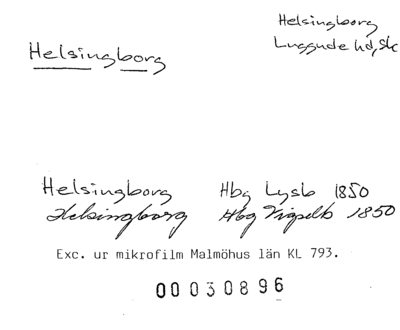 Helsingborg
Luggude hd, Sk
Helsingborg
Helsingborg Hbg Lysb 1850
Helsingborg Hbg Vigselb 1850
Exc. ur mikrofilm Malmöhus län KL 793.
00030896